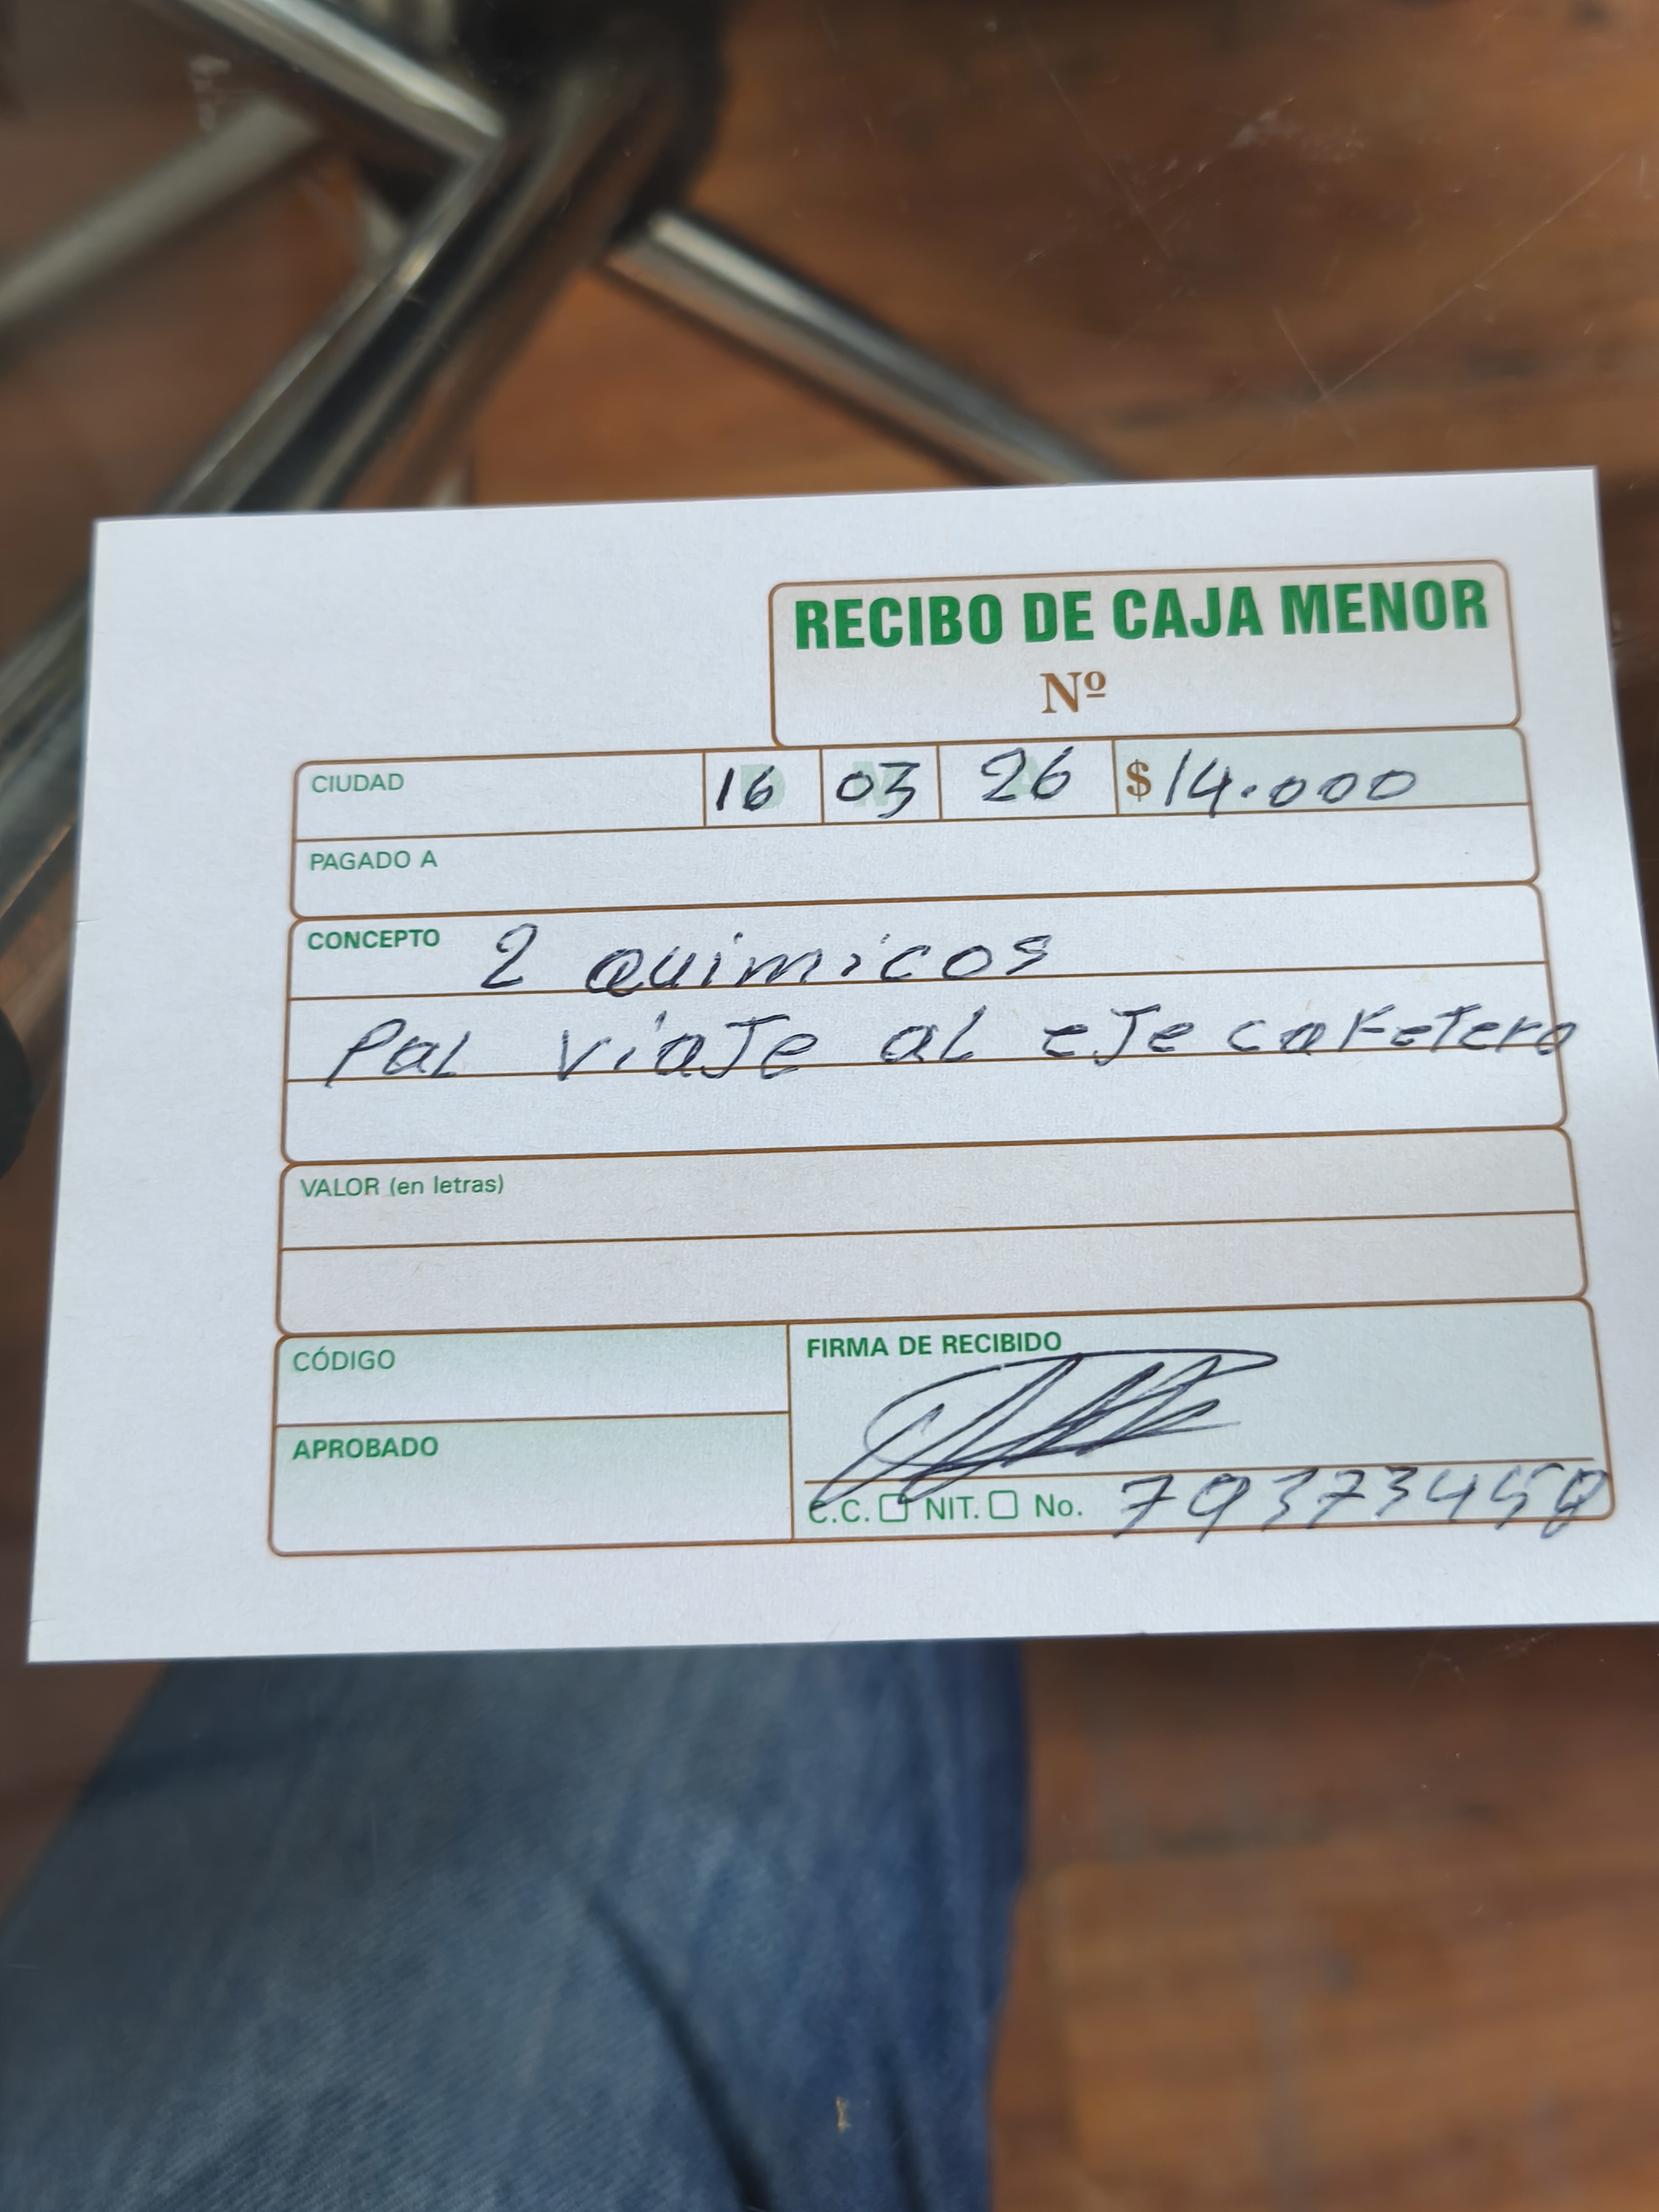 RECIBO DE CAJA MENOR
Nº
CIUDAD 16 03 26 $ 14.000
PAGADO A
CONCEPTO 2 Quimicos
Pal viaJe al eJe cafeTero
VALOR (en letras)
CÓDIGO
FIRMA DE RECIBIDO
APROBADO
C.C. NIT. No. 79373458